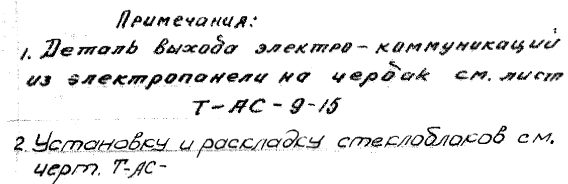 Примечания:
1. Деталь выхода электро-коммуникаций
из электропанели на чердак см. лист
Т-АС-9-15
2. Установку и раскладку стеклоблаков см.
черт. Т-АС-